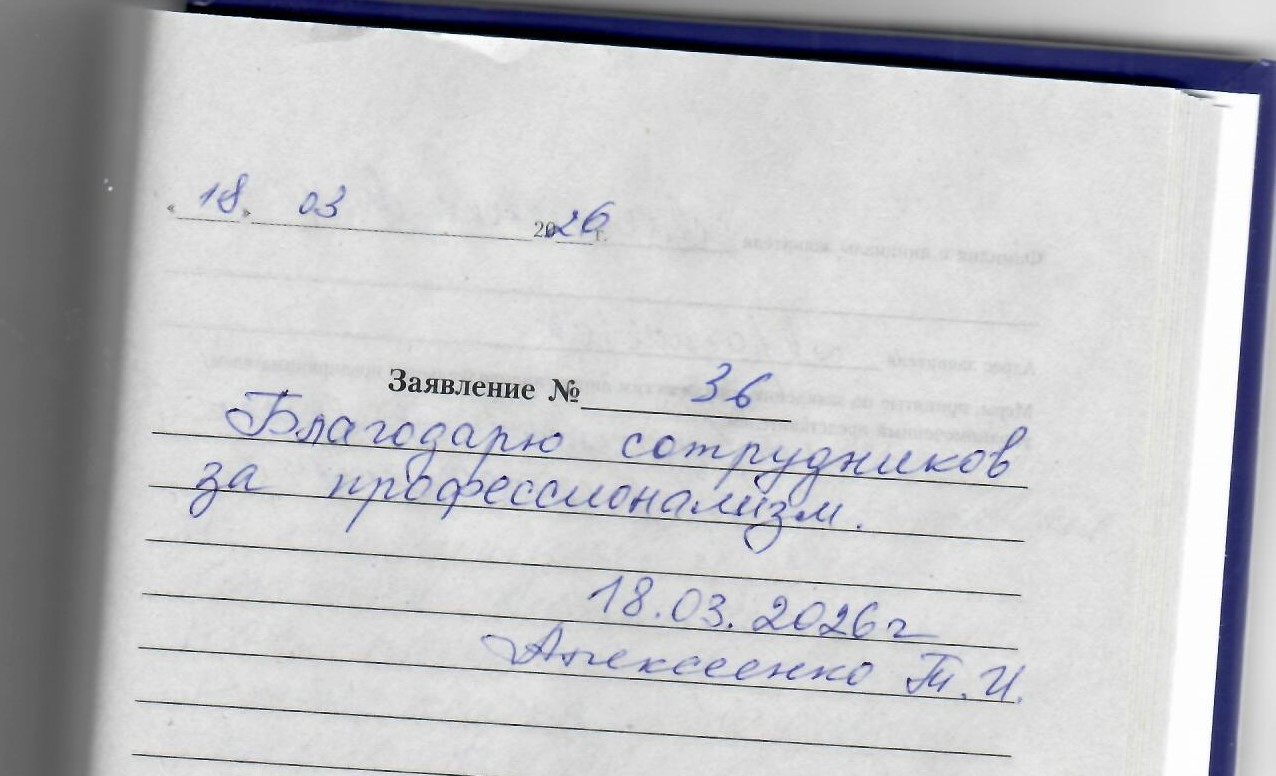 « 18 » 03 2026 г.
Заявление № 36
Благодарю сотрудников
за профессионализм.
18.03.2026 г
Алексеенко Т.И.